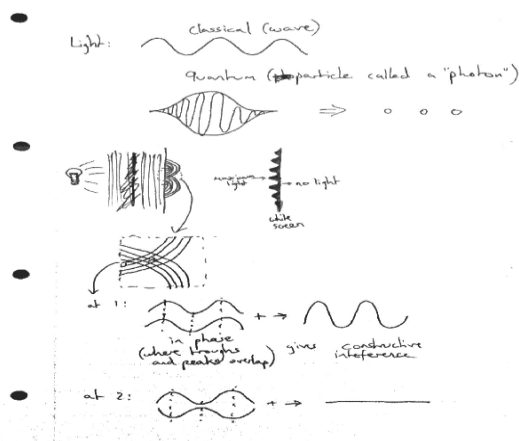 Light: classical (wave)
quantum (particle called a "photon")
maximum light
no light
white screen
at 1: + →
in phase
(where troughs and peaks overlap)
gives constructive inteference
at 2: + →